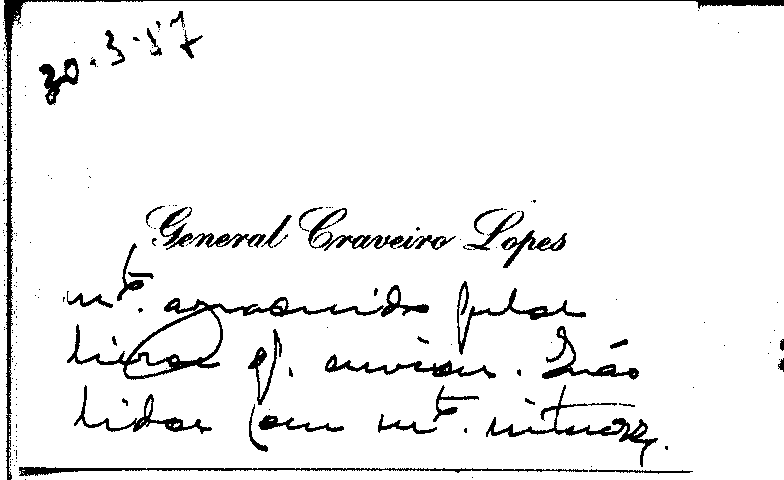 30.3.57
General Craveiro Lopes
mt. agradecido pelos
livros q. enviou. Serão
lidos com mt. interesse.